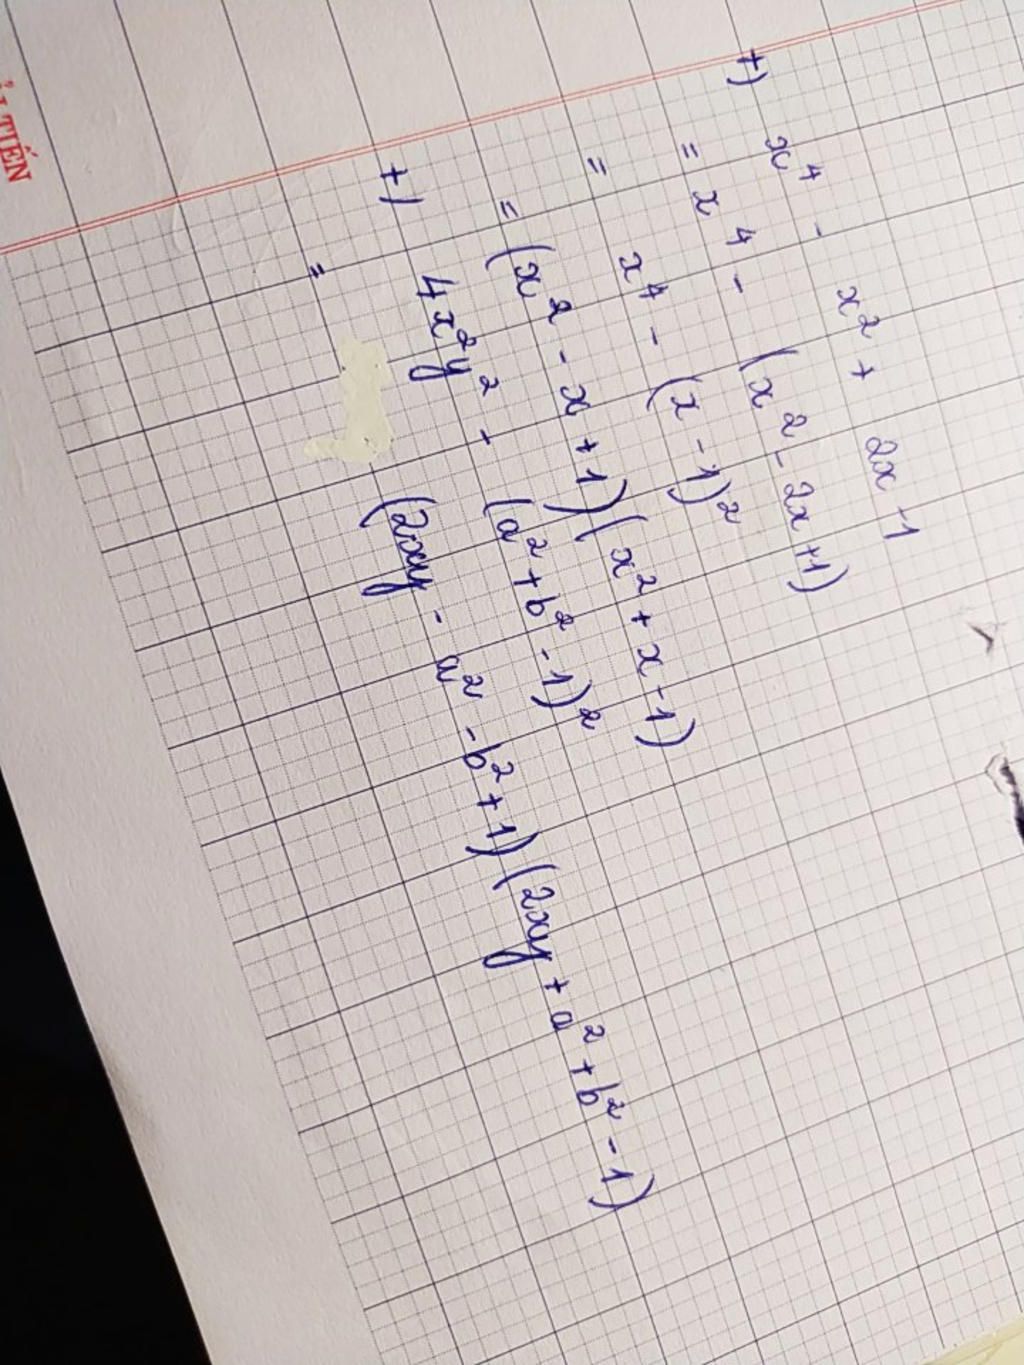 +) x⁴ - x² + 2x - 1
= x⁴ - (x² - 2x + 1)
= x⁴ - (x - 1)²
= (x² - x + 1)(x² + x - 1)
+) 4x²y² - (a² + b² - 1)²
= (2xy - a² - b² + 1)(2xy + a² + b² - 1)
TIẾN